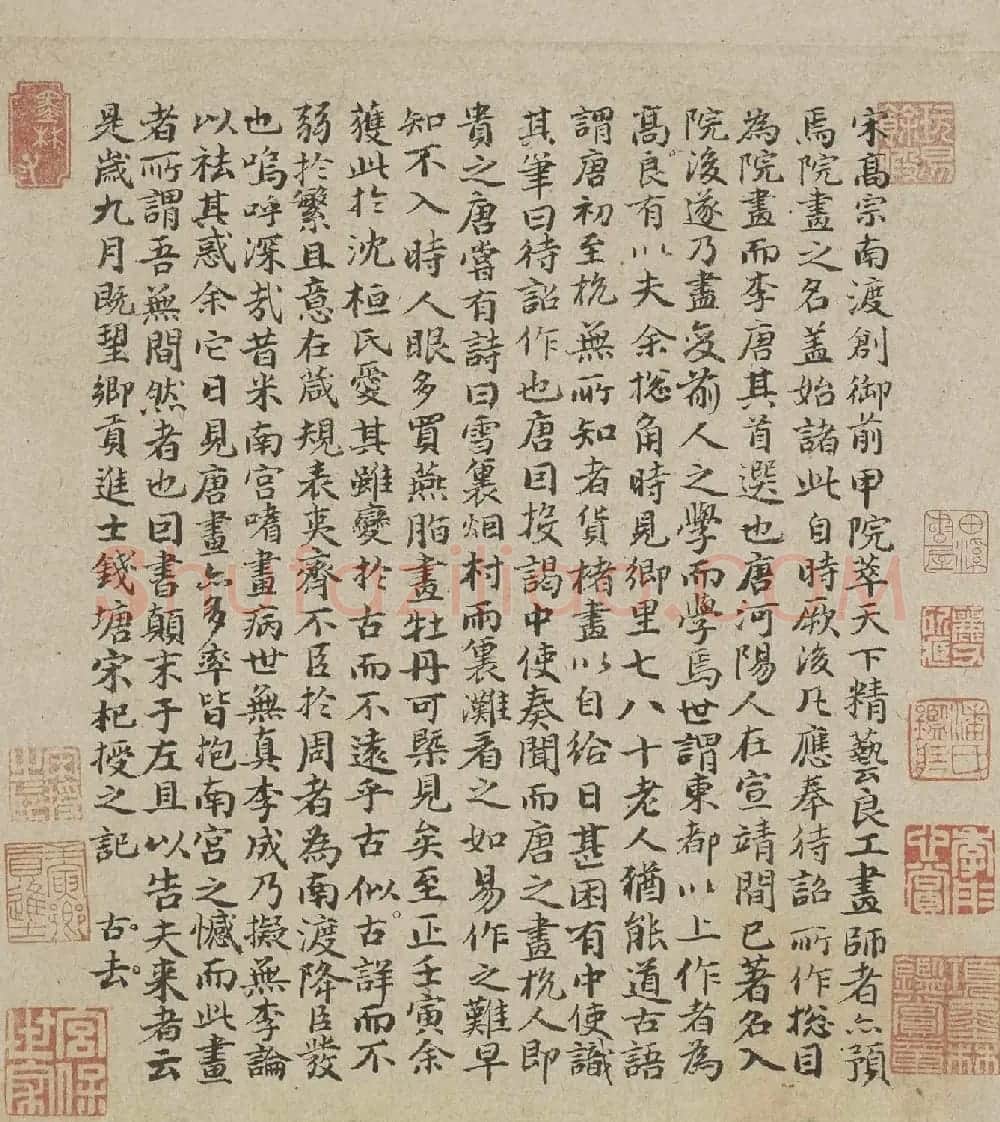 宋高宗南渡創御前甲院萃天下精藝良工畫師者亦預
焉院畫之名盖始諸此自時厥後凡應奉待詔所作揔目
為院畫而李唐其首選也唐河陽人在宣靖間已著名入
院後遂乃盡變前人之學而學焉世謂東都以上作者為
高良有以夫余揔角時見鄉里七八十老人猶能道古語
謂唐初至杭無所知者貨楮畫以自給日甚困有中使識
其筆曰待詔作也唐因投謁中使奏聞而唐之畫杭人即
貴之唐嘗有詩曰雪裏烟村雨裏灘看之如易作之難早
知不入時人眼多買燕脂畫牡丹可槩見矣至正壬寅余
獲此於沈桓氏愛其雖變於古而不遠乎古似古詳而不
弱於繁且意在箴規表夷齊不臣於周者為南渡降臣發
也嗚呼深哉昔米南宮嗜畫病世無真李成乃擬無李論
以祛其惑余它日見唐畫亦多率皆抱南宮之憾而此畫
者所謂吾無間然者也因書顛末于左且以告夫来者云
是歲九月既望鄉貢進士錢塘宋杞授之記 古去
墨林
宮保世家
shufaziliao.com